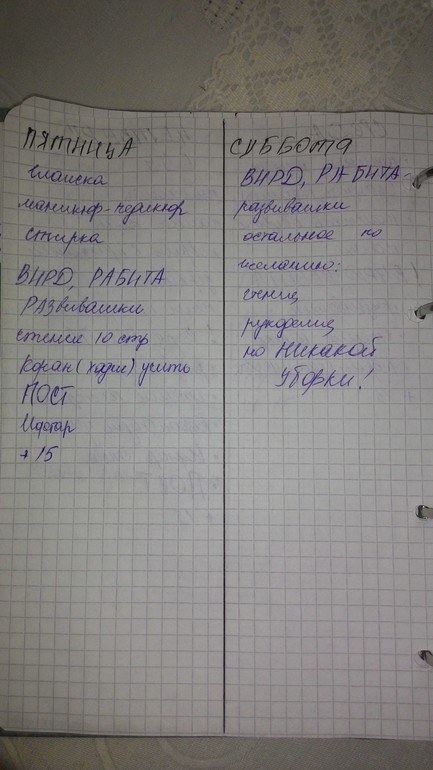 ПЯТНИЦА
влаиска
маникюр-педикюр
стирка
ВИРД, РАБИТА
РАЗвивашки
чтение 10 стр
Коран (хадис) учить
ПОСТ
Ифтар
+ 15
СУББОТА
ВИРД, РАБИТА-
развивашки
остальное по
желанию:
чтение
рукоделие
но НИКАКОЙ
УБОРКИ!